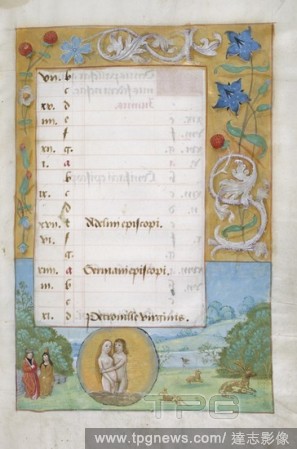 vii. b
c
xv. d
iiii. e
f
xii. g
a
b
ix. c
d
xvii. e Adelmi episcopi.
vi. f
g
xiiii. a Germani episcopi.
iii. b
c
xi. d Petronille virginis.
TPG
www.tpgnews.com/ 達志影像